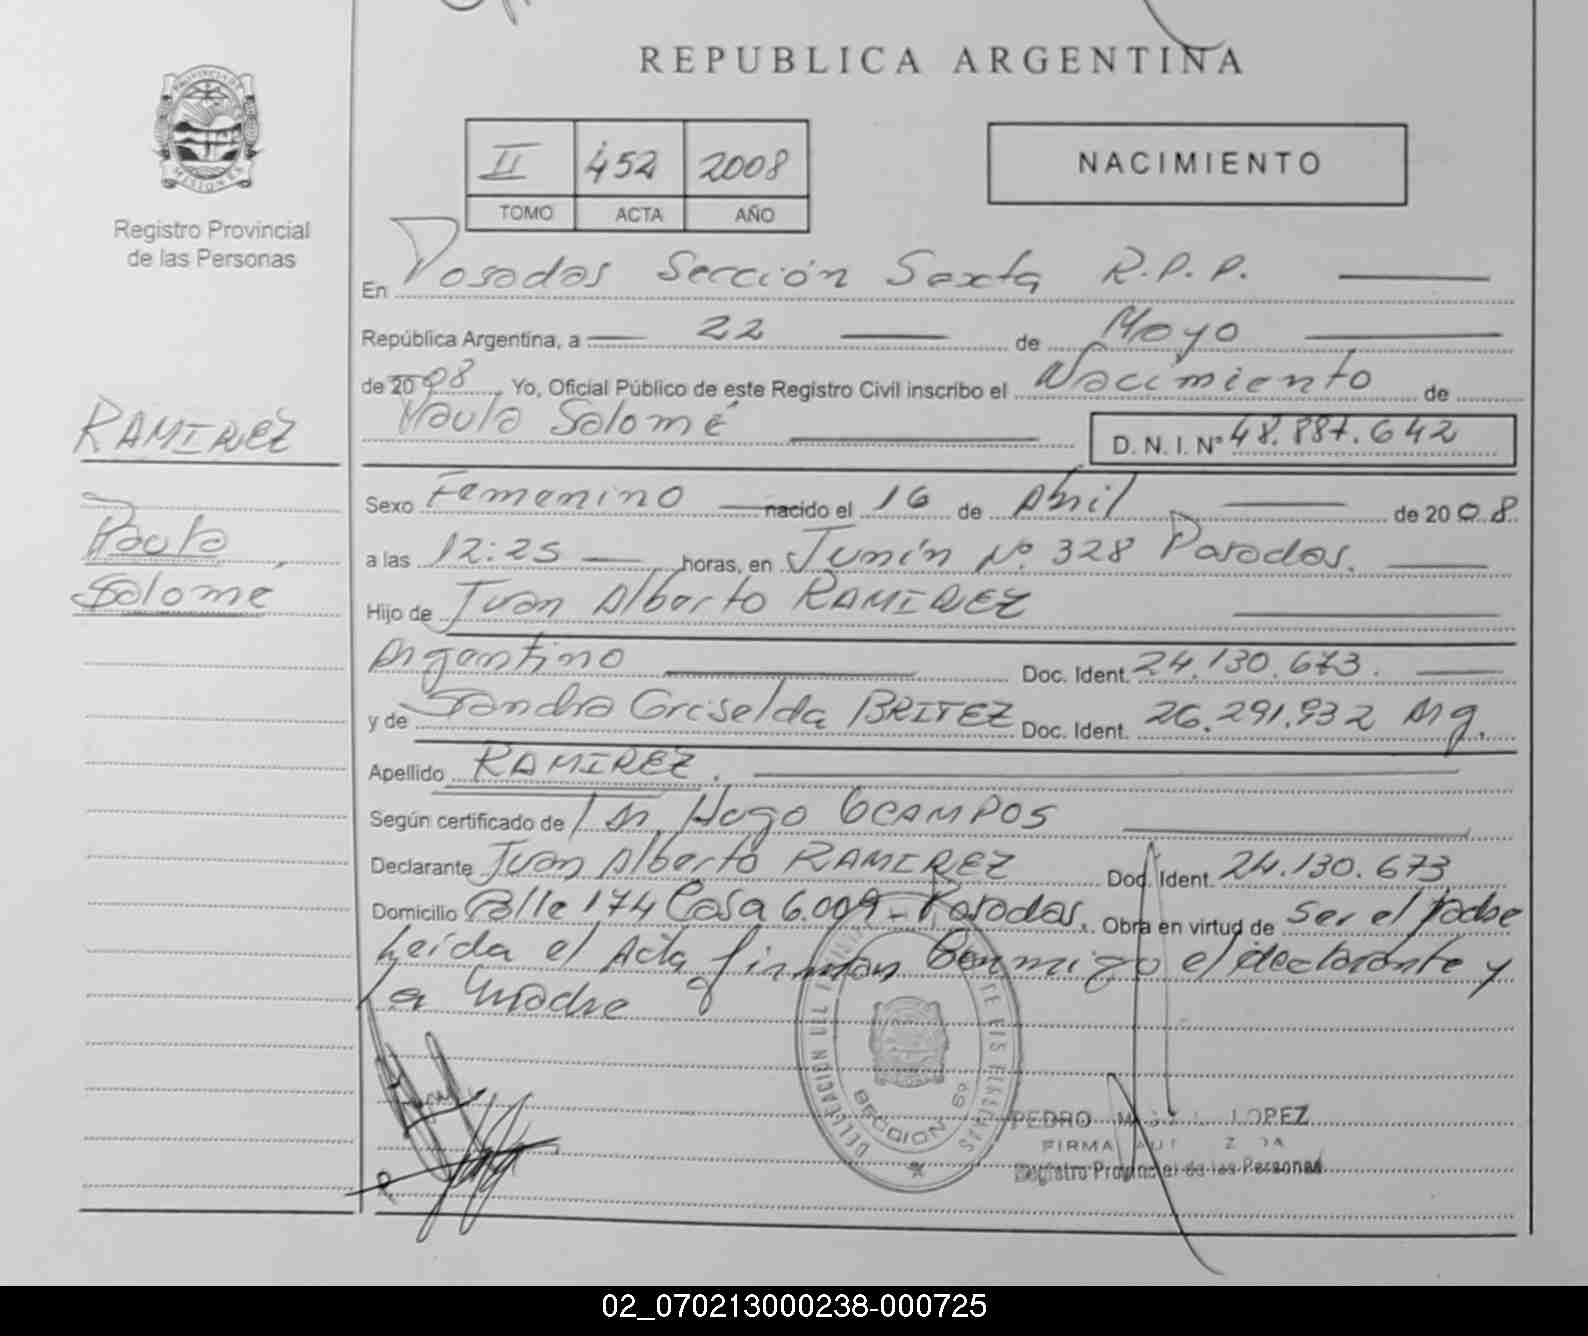 REPUBLICA ARGENTINA
PROVINCIA DE MISIONES
Registro Provincial
de las Personas
II 452 2008
TOMO ACTA AÑO
NACIMIENTO
En Posadas Sección Sexta R.P.P.
República Argentina, a 22 de Mayo
de 2008 Yo, Oficial Público de este Registro Civil inscribo el Nacimiento de
Paula Salomé D. N. I. Nº 48.887.642
RAMIREZ
Paula
Salomé
Sexo Femenino nacido el 16 de Abril de 2008
a las 12:25 horas, en Junín Nº. 328 Posadas.
Hijo de Juan Alberto RAMIREZ
Argentino Doc. Ident. 24.130.673.
y de Sandra Griselda BRITEZ Doc. Ident. 26.291.932 Arg.
Apellido RAMIREZ.
Según certificado de Dr. Hugo OCAMPOS
Declarante Juan Alberto RAMIREZ Doc. Ident. 24.130.673
Domicilio Calle 174 Casa 6.009 - Posadas. Obra en virtud de ser el padre
Leída el Acta firman conmigo el declarante y
la madre
SECCION 6º
PEDRO LOPEZ
FIRMA
Registro Provincial de las Personas
02_070213000238-000725